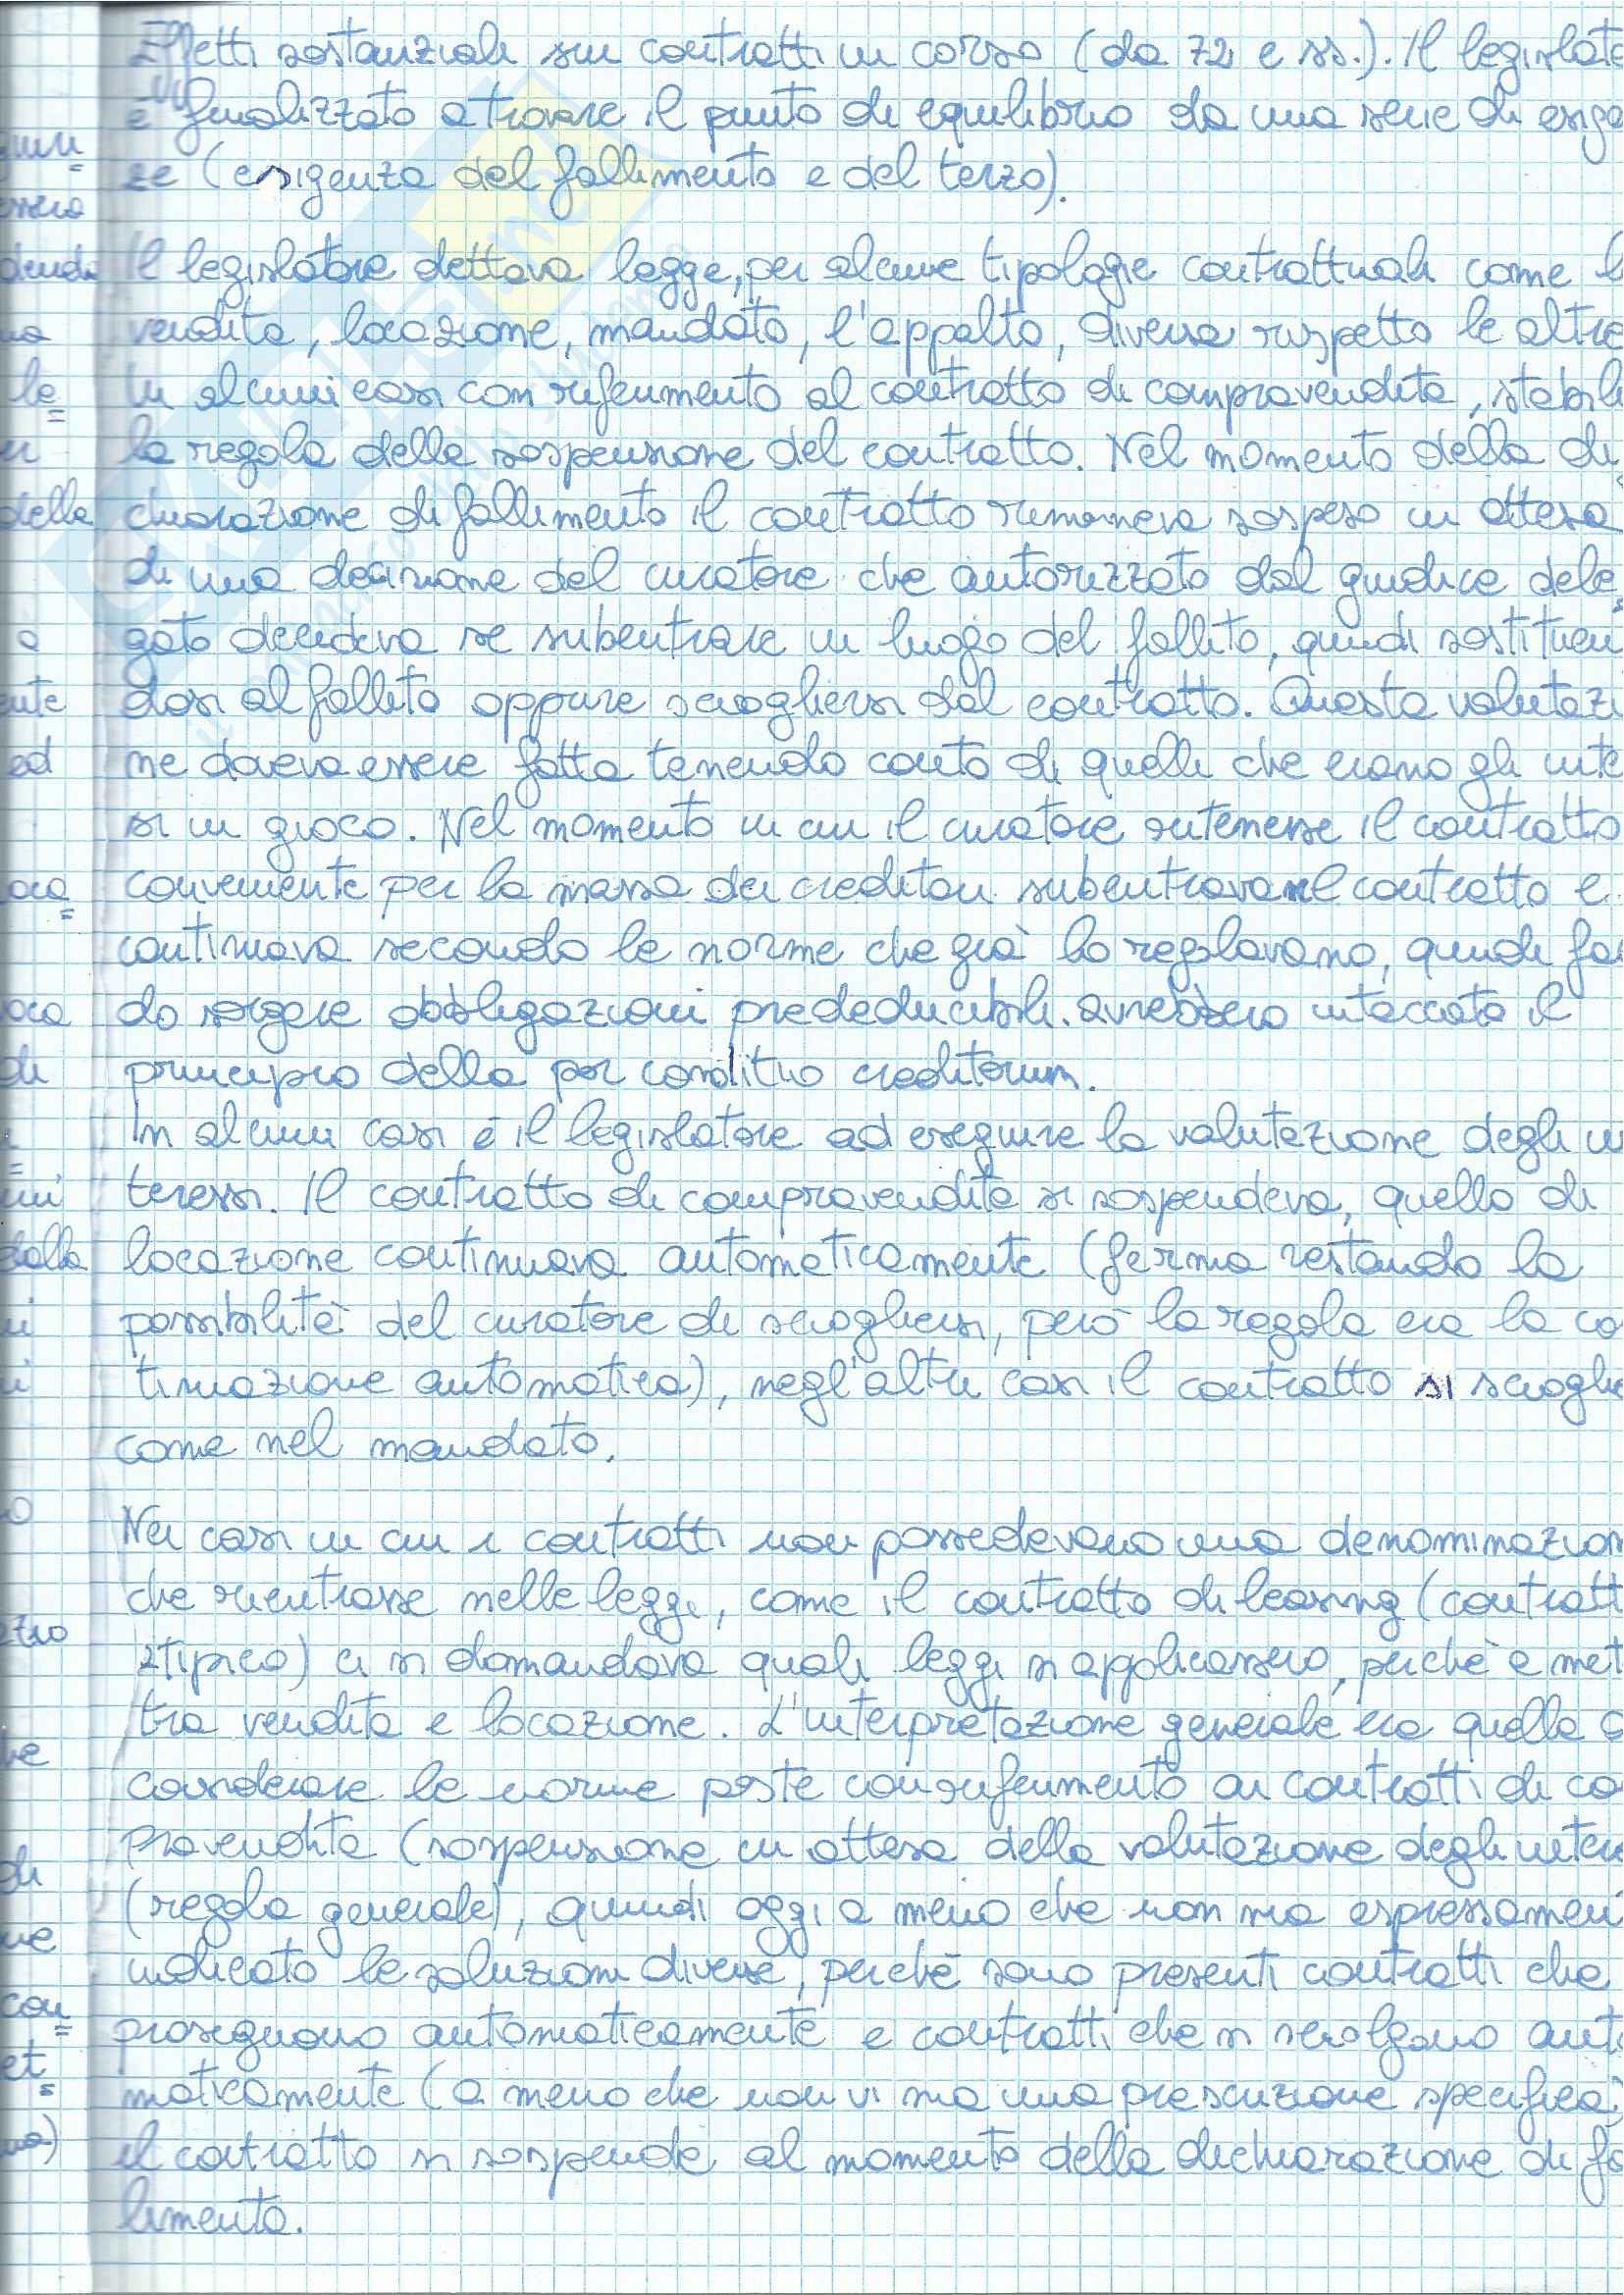 Effetti sostanziali sui contratti in corso (da 72 e ss.). Il legislato
è finalizzato a trovare il punto di equilibrio da una serie di esige
ze (esigenza del fallimento e del terzo).
Il legislatore dettava legge, per alcune tipologie contrattuali come l
vendita, locazione, mandato, l'appalto, diversa rispetto le altre
In alcuni casi con riferimento al contratto di compravendita, stabili
la regola della sospensione del contratto. Nel momento della di
chiarazione di fallimento il contratto rimaneva sospeso in attesa
di una decisione del curatore che autorizzato dal giudice dele
gato decideva se subentrare in luogo del fallito, quindi sostituen
dosi al fallito oppure sciogliersi dal contratto. Questa valutazi
ne doveva essere fatta tenendo conto di quelli che erano gli inte
si in gioco. Nel momento in cui il curatore ritenesse il contratto
conveniente per la massa dei creditori subentrava nel contratto e
continuava secondo le norme che già lo regolavano, quindi fa
do sorgere obbligazioni prededucibili. avrebbero intaccato il
principio della par conditio creditorum.
In alcuni casi è il legislatore ad eseguire la valutazione degli in
teressi. Il contratto di compravendita si sospendeva, quello di
locazione continuava automaticamente (ferma restando la
possibilità del curatore di sciogliersi, però la regola era la co
tinuazione automatica), negl'altri casi il contratto si scioglie
come nel mandato.
Nei casi in cui i contratti non possedevano una denominazion
che rientrasse nelle leggi, come il contratto di leasing (contratt
atipico) ci si domandava quali leggi si applicassero, perchè è met
tra vendita e locazione. L'interpretazione generale era quella d
considerare le norme poste con riferimento ai contratti di co
pravendita (sospensione in attesa della valutazione degli inter
(regola generale), quindi oggi a meno che non sia espressamen
indicato le soluzioni diverse, perchè sono presenti contratti che
proseguono automaticamente e contratti che si sciolgono auto
maticamente (a meno che non vi sia una prescrizione specifica)
il contratto si sospende al momento della dichiarazione di fa
limento.